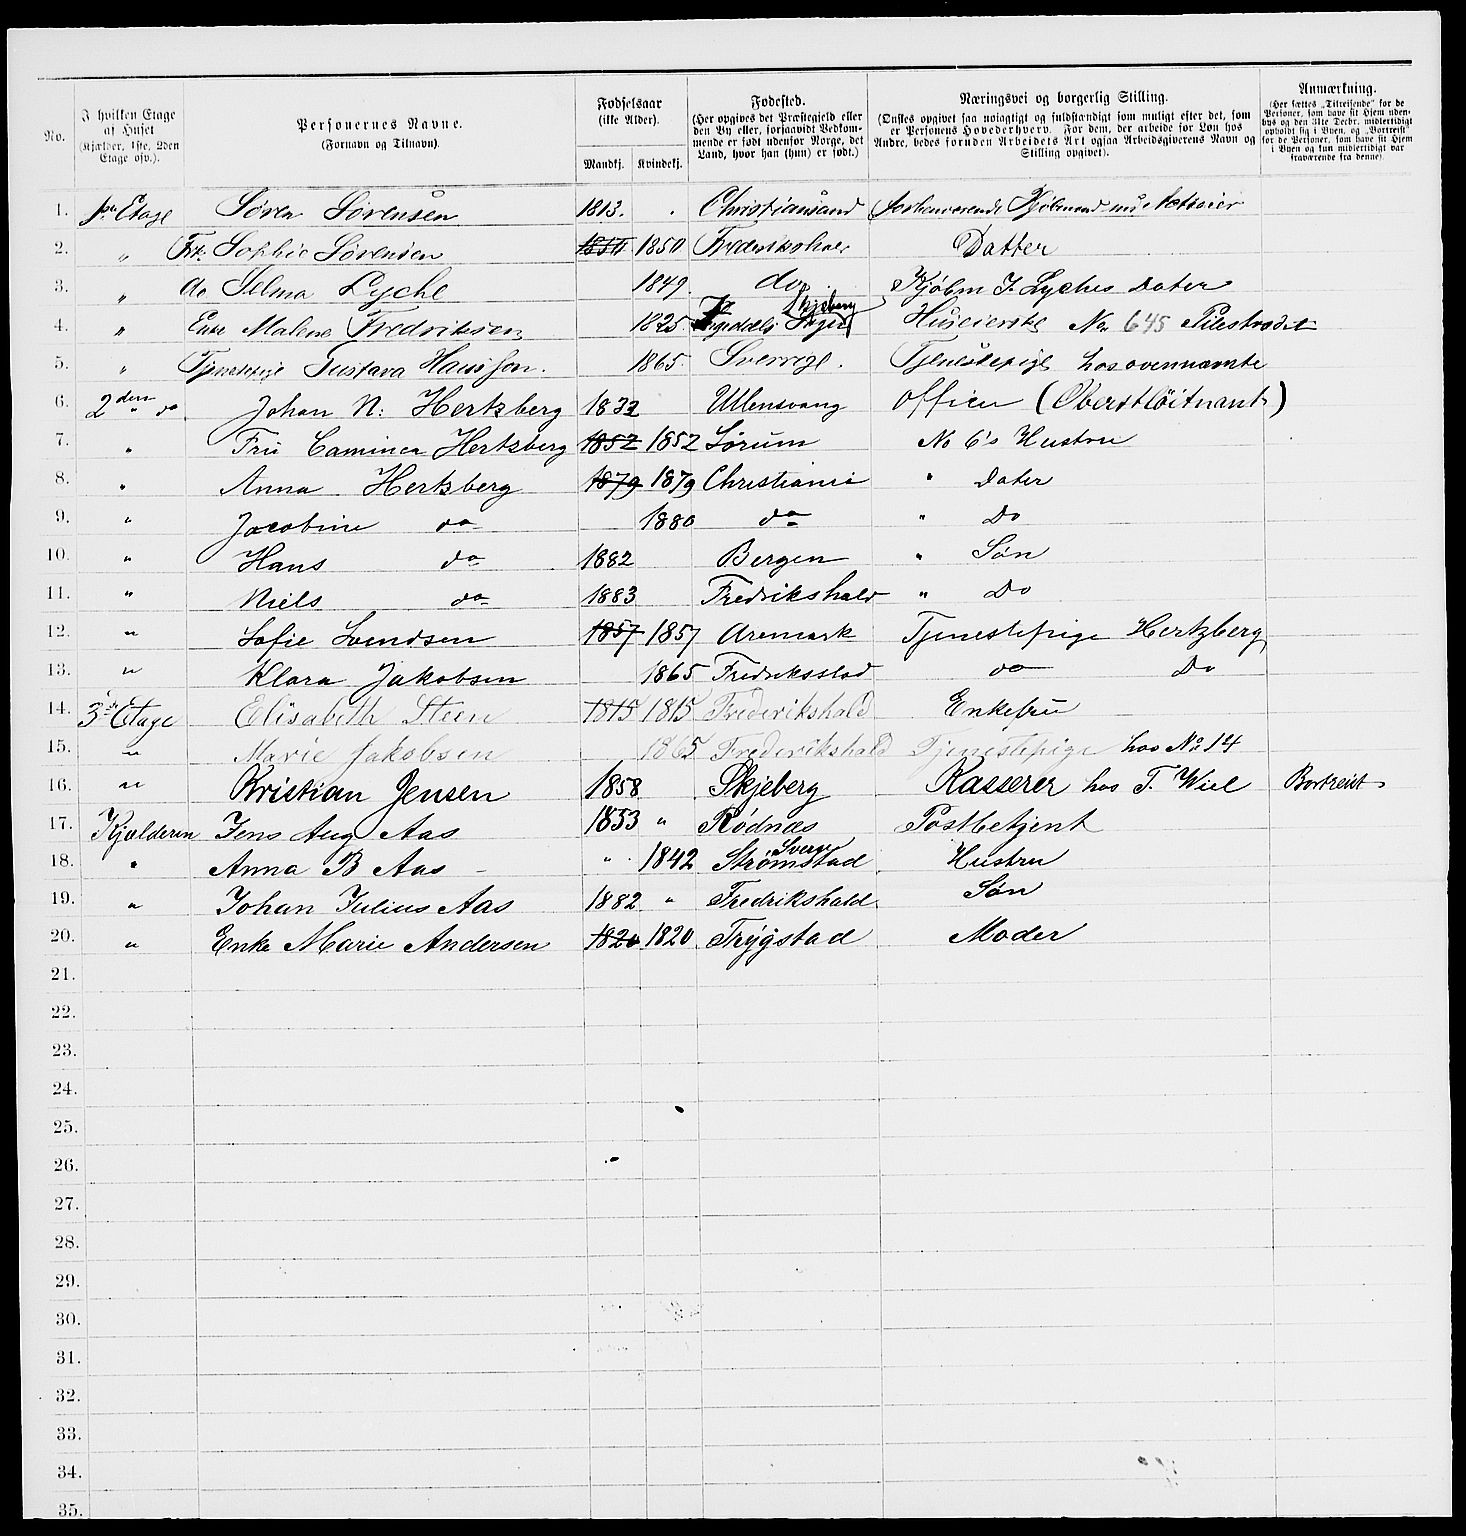 No.
I hvilken Etage af Huset (Kjælder, 1ste, 2den Etage osv.).
Personernes Navne. (Fornavn og Tilnavn).
Fødselsaar (ikke Alder).
Mandkj. Kvindekj.
Fødested. (Her opgives det Præstegjeld eller den By eller, forsaavidt Vedkommende er født udenfor Norge, det Land, hvor han (hun) er født.)
Næringsvei og borgerlig Stilling. (Ønskes opgivet saa nøiagtigt og fuldstændigt som muligt efter det, som er Personens Hovederhverv. For dem, der arbeide for Løn hos Andre, bedes foruden Arbeidets Art ogsaa Arbeidsgiverens Navn og Stilling opgivet).
Anmærkning. (Her sættes „Tilreisende" for de Personer, som have sit Hjem udenbys og den 31te Decbr. midlertidigt opholdt sig i Byen, og „Bortreist" for de Personer, som have sit Hjem i Byen og kun midlertidigt var fraværende fra denne).
1. 1ste Etage Søren Sørensen 1813. Christiansand Forhenværende Kjøbmand
2. " Frk. Sophie Sørensen 1850 1850 Frederikshald Datter
3. " do Selma Lyche 1849. do Kjøbm J. Lyches Dater
4. " Enke Malene Fredriksen 1825. Skjeberg Huseierske No 645 Pilestrædet
5. " Tjenestepige Gustava Hansson. 1865. Sverrige. Tjenestepige hos ovennævnte
6. 2den " do Johan N: Hertzberg 1832 Ullensvang Officer (Oberstløitnant)
7. " Fru Caminca Hertzberg 1852 1852 Sørum No 6's Hustru
8. " Anna Hertzberg 1879 1879 Christiania " Dater
9. " Jacobine do 1880 do " Do
10. " Hans do 1882 Bergen " Søn
11. " Niels do 1883 Fredrikshald " Do
12. " Sofie Svendsen 1857 1857 Aremark Tjenestepige Hertzberg
13. " Klara Jakobsen 1865 Fredriksstad do Do
14. 3die Etage Elisabeth Steen 1815 1815 Frederikshald Enkefru
15. " Marie Jakobsen 1865 Frederikshald Tjenestepige hos No 14
16. " Kristian Jensen 1858 Skjeberg Kasserer hos T. Wiel Bortreist
17. Kjælderen Jens Aug Aas 1853 " Rødnæs Postbetjent
18. " Anna B Aas " 1842 Strømstad Sverge Hustru
19. " Johan Julius Aas 1882 " Fredrikshald Søn
20. " Enke Marie Andersen 1820 1820 Trygstad Moder
21.
22.
23.
24.
25.
26.
27.
28.
29.
30.
31.
32.
33.
34.
35.